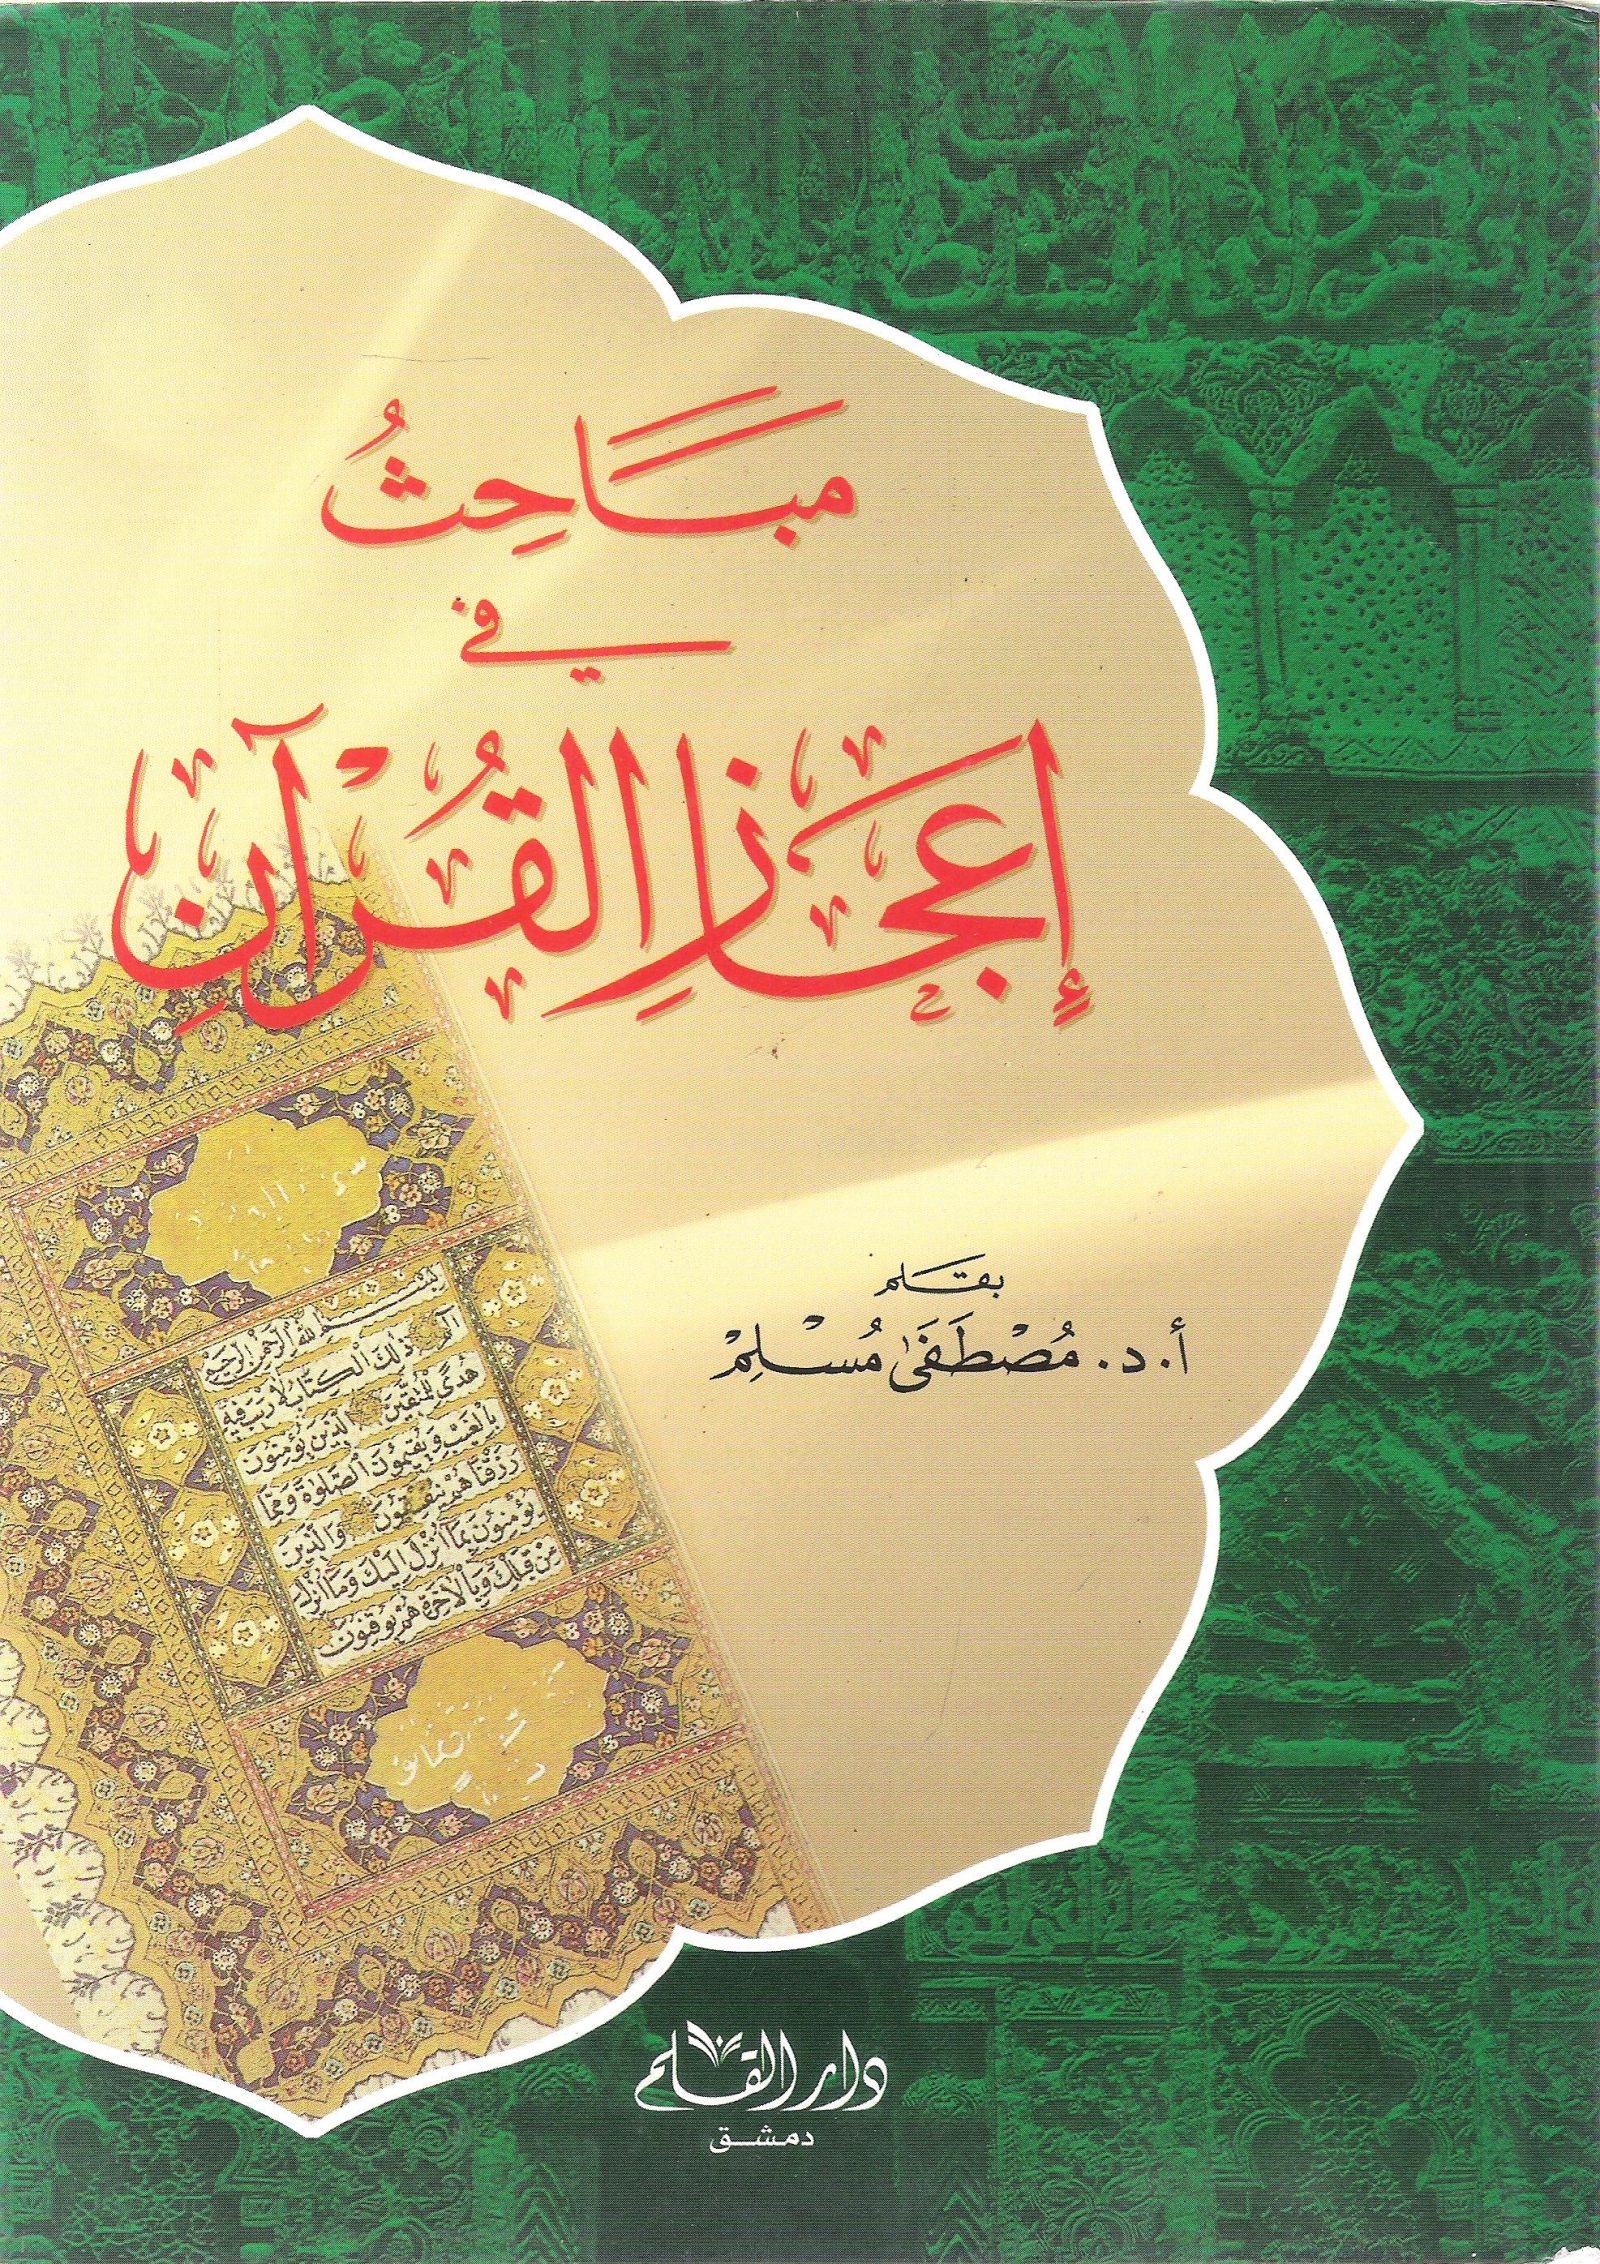 مبَاحِثُ
في
إعجَازِ القُرْآنِ
بقَلم
أ. د. مُصْطَفَىٰ مُسْلِمْ
بسم الله الرحمن الرحيم
الٓمٓ ذٰلِكَ الكِتَابُ لَا رَيْبَ فِيهِ
هُدًى لِلْمُتَّقِينَ الَّذِينَ يُؤْمِنُونَ
بِالْغَيْبِ وَيُقِيمُونَ الصَّلَاةَ وَمِمَّا
رَزَقْنَاهُمْ يُنْفِقُونَ وَالَّذِينَ
يُؤْمِنُونَ بِمَا أُنْزِلَ إِلَيْكَ وَمَا أُنْزِلَ
مِنْ قَبْلِكَ وَبِالْآخِرَةِ هُمْ يُوقِنُونَ
دار القلم
دمشق